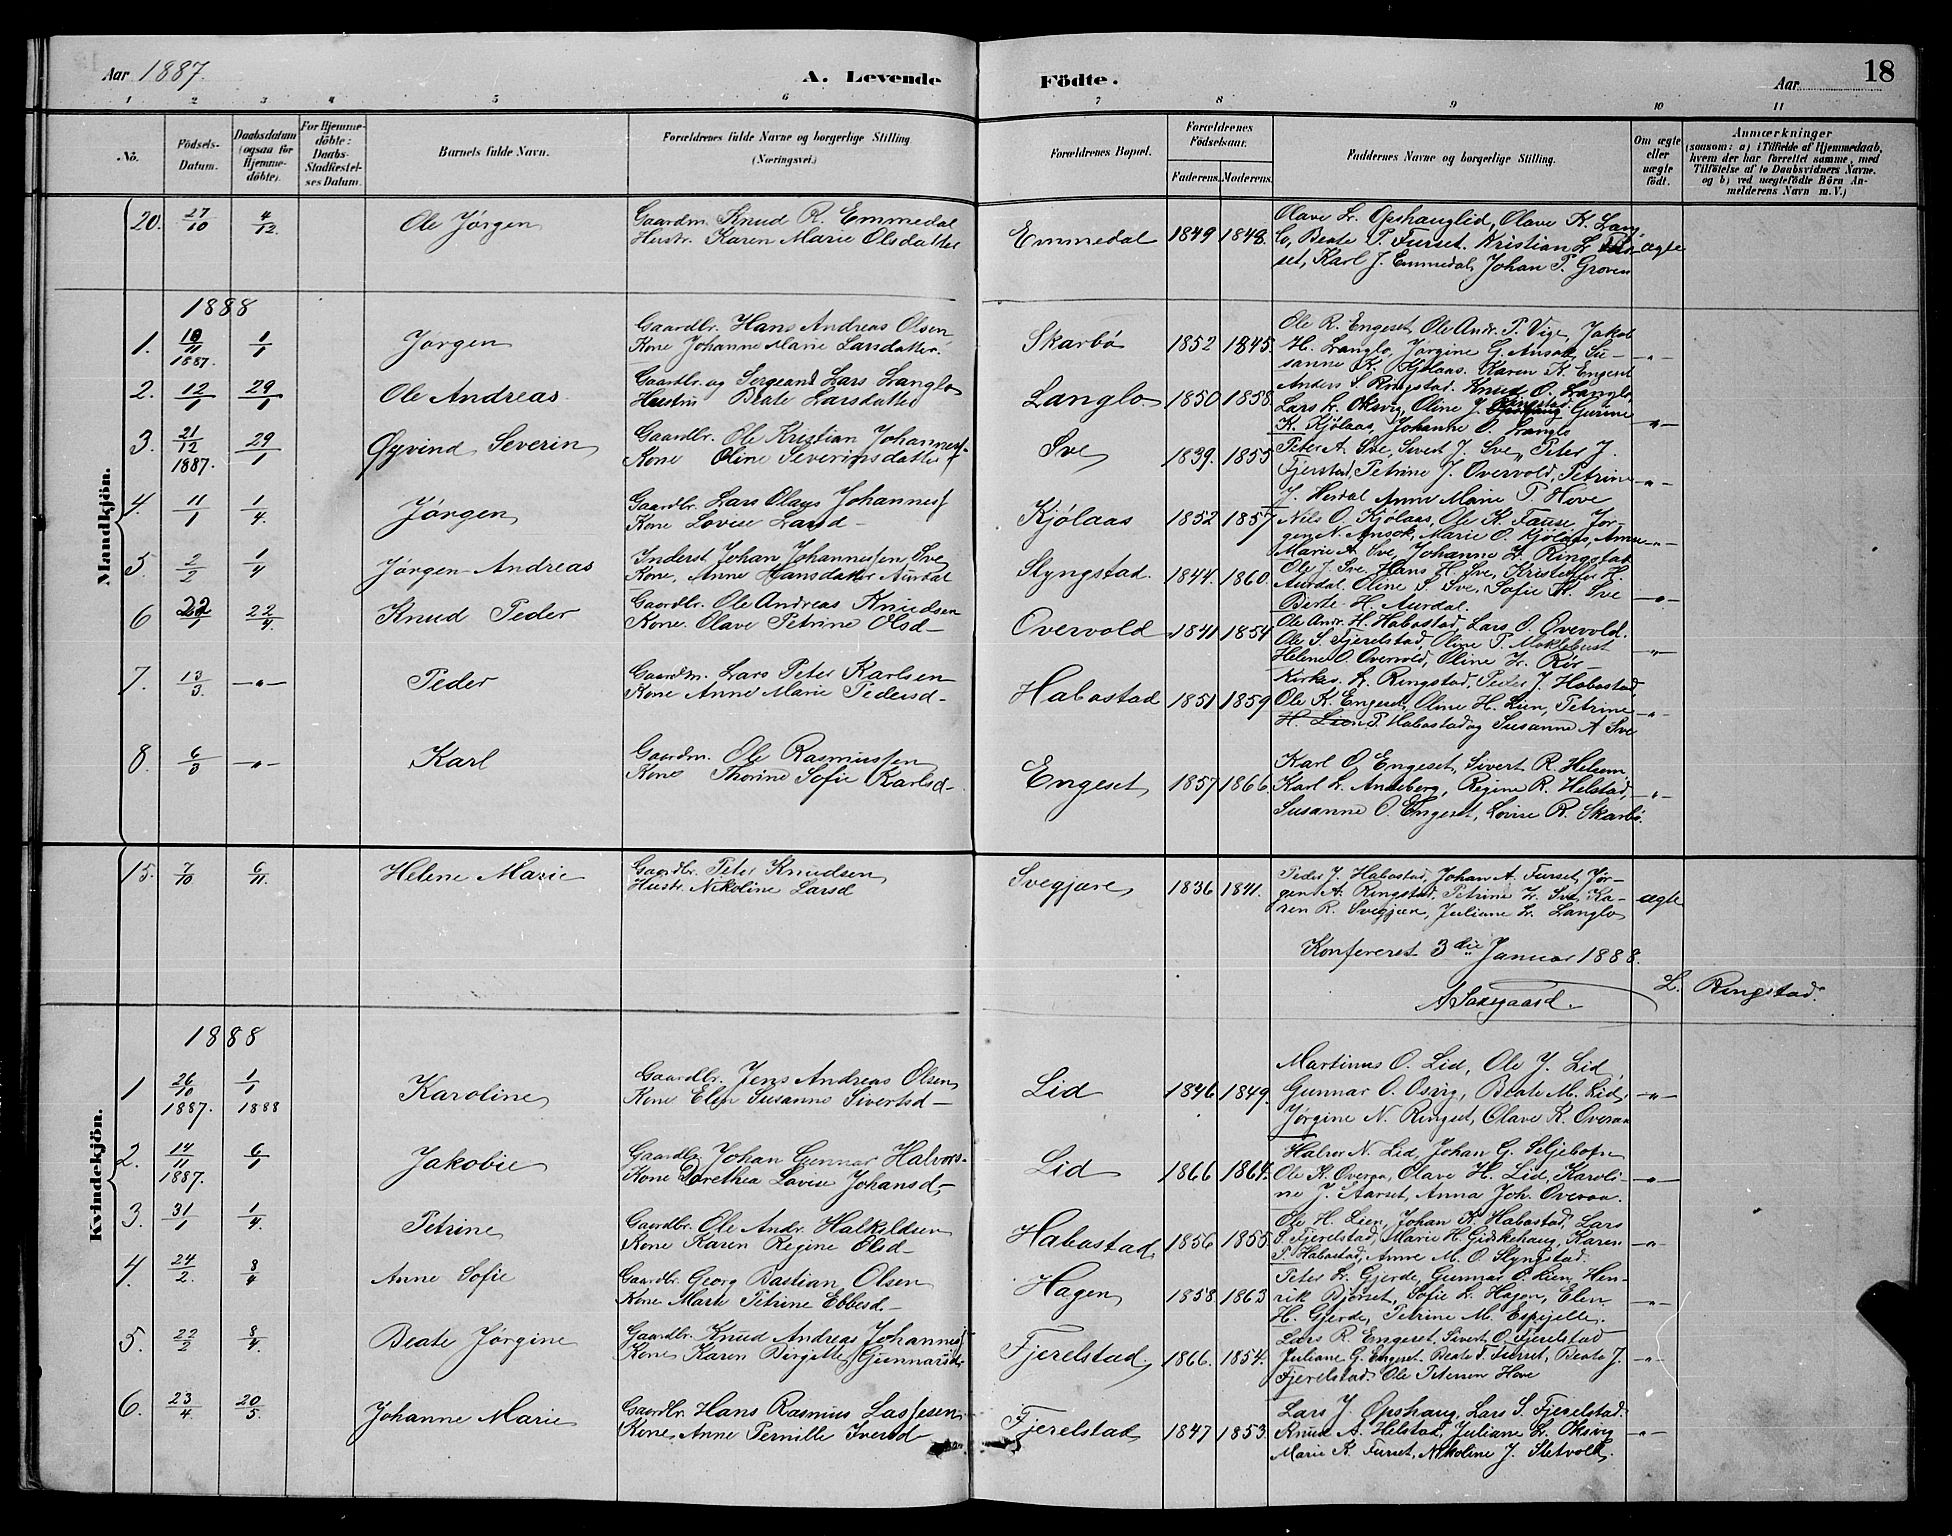 Aar 1887.
A. Levende Födte.
Aar
18
1 2 3 4 5 6 7 8 9 10 11
No.
Födsels-Datum.
Daabsdatum (ogsaa for Hjemme-döbte).
For Hjemme-döbte: Daabs-Stadfæstel-ses Datum.
Barnets fulde Navn.
Forældrenes fulde Navne og borgerlige Stilling (Næringsvei.)
Forældrenes Bopæl.
Forældrenes Födselsaar.
Faderens. Moderens.
Faddernes Navne og borgerlige Stilling.
Om ægte eller uægte født.
Anmærkninger
(saasom: a) i Tilfælde af Hjemmedaab, hvem der har forrettet samme, med Tilföielse af to Daabsvidners Navne. og b) ved uægtefödte Börn An-melderens Navn m. V.)
Mandkjön.
20. 27/10 4/12 Ole Jørgen
Gaardm. Knud R. Emmedal
Hustr. Karen Marie Olsdatter
Emmedal 1849 1848.
Olave L. Opshauglid, Olave K. Lang-
lo, Beate P. Furset. Kristian L. Fur- ægte
set, Karl J. Emmedal, Johan P. Groven
1888
1. 18/11 1887. 1/1 Jørgen
Gaardbr. Hans Andreas Olsen
Kone Johanne Marie Larsdatter.
Skarbø 1852 1845.
Ole R. Engeset, Ole Andr. P. Vige, Jakob
H. Langlo, Jørgine G. Ansok, Su- -„-
sanne K. Kjølaas. Karen K. Engeset
2. 12/1 29/1 Ole Andreas
Gaardbr. og Sergeant Lars Langlo
Hustru Beate Larsdatter
Langlo 1850 1858.
Anders S. Ringstad. Knud O. Langlo,
Lars L. Oksvig, Oline J. Ringstad Gurine
K. Kjølaas, Johanne O. Langlo -„-
3. 21/12 1887. 29/1 Øyvind Severin
Gaardbr. Ole Kristian Johanness.
Kone Oline Severinsdatter
Sve 1839. 1855
Peter A. Sve, Sivert J. Sve, Peter J.
Fjerstad, Petrine J. Overvold, Petrine -„-
J. Herdal Anne Marie P. Hove
4. 11/1 1/4. Jørgen
Gaardbr. Lars Olaus Johanness
Kone Lovise Larsd-
Kjølaas 1852 1857
Nils O. Kjølaas, Ole K. Fause, Jør-
gen N. Ansok, Marie O. Kjølaas, Anne -„-
Marie A. Sve, Johanne L. Ringstad
5. 2/2 1/4 Jørgen Andreas
Inderst Johan Johannessen Sve
Kone, Anne Hansdatter Aurdal
Slyngstad. 1844. 1860.
Ole J. Sve. Hans H. Sve, Kristoffer H.
Aurdal. Oline S. Sve, Sofie K. Sve -„-
Berte H. Aurdal.
6 22/1 22/4. Knud Peder
Gaardbr. Ole Andreas Knudsen
Kone. Olave Petrine Olsd-
Overvold 1841 1854
Ole Andr. H. Habostad, Lars O. Overvold.
Ole S. Fjerelstad, Oline P. Moklebust -„-
Helene O. Overvold, Oline L. Rør-
7. 13/3. -„- Peder
Gaardm. Lars Peter Karlsen
Kone Anne Marie Pedersd-
Habostad 1851 1859
Kirkes. L. Ringstad, Peder J. Habostad
Ole K. Engeset, Oline H. Lien, Petrine -„-
H. Lien P. Habostad og Susanne A Sve
8. 6/3 -„- Karl
Gaardm. Ole Rasmussen
Kone Thorine Sofie Karlsd-
Engeset 1857 1866
Karl O. Engeset, Sivert R. Helsem,
Karl L. Anneberg, Regine R. Helstad, -„-
Susanne O. Engeset, Lovise R. Skarbø.
Kvindekjön.
15. 7/10 6/11. Helene Marie
Gaardbr. Peter Knudsen
Hustr. Nikoline Larsd
Svegjære 1836 1841.
Peder J. Habostad, Johan A. Furset, Jør-
gen A. Ringstad, Petrine L. Sve, Ka- ægte
ren R. Svegjære, Juliane L. Langlo
Konfereret 3die Januar 1888.
A Saxegaard. L. Ringstad.
1888
1 26/10 1887. 1/1 1888 Karoline
Gaardbr. Jens Andreas Olsen
Kone Elen Susanne Sivertsd-
Lid 1846 1849.
Martinus O. Lid, Ole J. Lid,
Gunnar O. Osvig, Beate M. Lid, -„-
Jørgine N. Ringset, Olave K. Overaa
2. 14/11 1887. 6/1 Jakobie
Gaardbr. Johan Gunnar Halvors-
Kone Dorethea Lovise Johansd-
Lid 1866 1864.
Halvor N. Lid, Johan G. Seljebotn
Ole K. Overaa, Olave H. Lid, Karoli- -„-
ne J. Aarset, Anna Joh. Overaa.
3. 31/1 1/4. Petrine
Gaardbr. Ole Andr. Halkeldsen
Kone Karen Regine Olsd-
Habostad 1856 1855
Ole H. Lien, Johan K. Habostad, Lars
S. Fjerelstad, Marie H. Gidskehaug, Karen -„-
P. Habostad, Anne M. O. Slyngstad.
4. 24/2. 8/4 Anne Sofie
Gaardbr. Georg Bastian Olsen
Kone Mart Petrine Ebbesd-
Hagen 1858. 1863
Peter L. Gjerde, Gunnar O. Lien, Hen-
rik Bjørset, Sofie L. Hagen, Elen -„-
H. Gjerde, Petrine M. Espejelle.
5. 22/2 8/4. Beate Jørgine
Gaardbr. Knud Andreas Johanness
Kone, Karen Birgitte Gunnarsd.
Fjerelstad, 1866. 1854.
Lars R. Engeset, Sivert O. Fjerelstad
Juliane G. Engeset. Beate T. Furset, Beate J. -„-
Fjerelstad. Ole Petersen Hove
6. 23/4 20/5. Johanne Marie
Gaardbr. Hans Rasmus Lassesen
Kone, Anne Pernille Iversd
Fjerelstad, 1847 1853.
Lars J. Opshaug, Lars S. Fjerelstad.
Knud A. Helstad, Juliane L. Oksvig -„-
Marie K. Furset, Nikoline J. Sletvold.